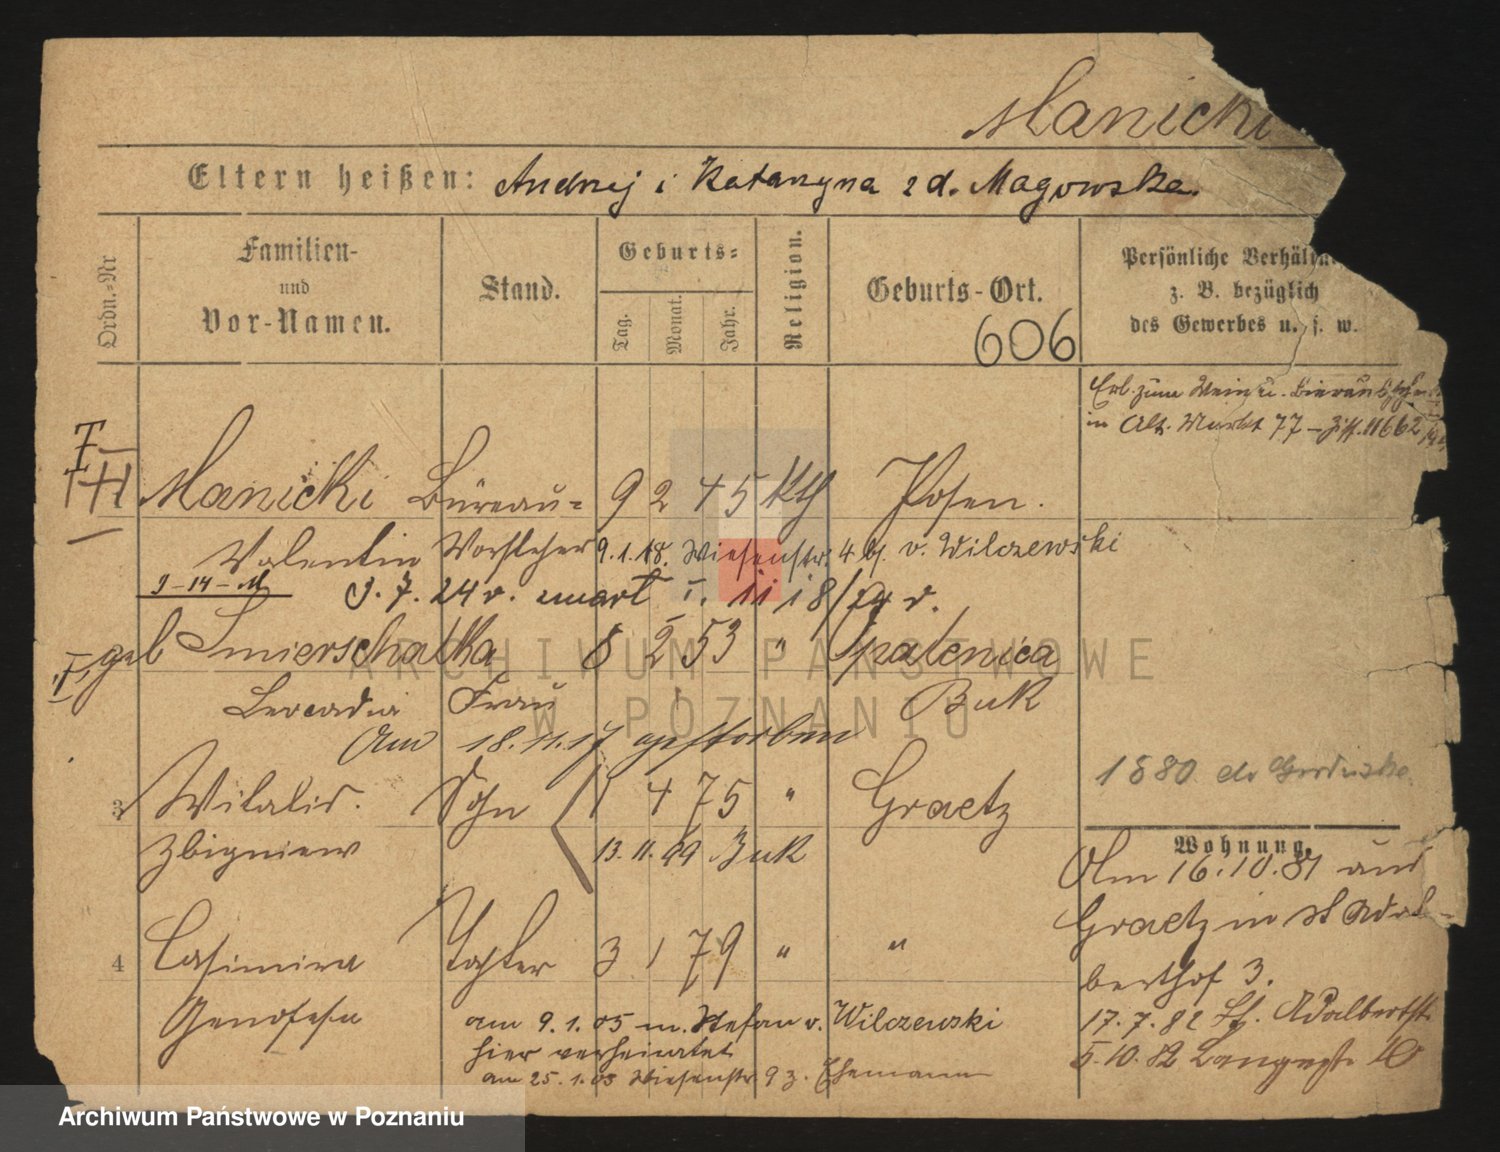 Manicki
Eltern heißen: Andrzej i Katarzyna z d. Magowska.
Ordn.-Nr
Familien-
und
Vor-Namen.
Stand.
Geburts-
Tag.
Monat.
Jahr.
Religion.
Geburts-Ort.
606
Persönliche Verhält
z. B. bezüglich
des Gewerbes u. s. w.
Erl. zum Wein u.
in Alt. Markt 77 – Ziff. 11662
Manicki Büreau= 9 2 45 Kth Posen.
Valentin Vorsteher 9.1.18. Wiesenstr. 4 b. v. Wilczewski
J-14-M 3.7.24 r. umarł I. 1118/24 r.
geb Smierschalka 8 2 53 " Opalenica
Leocadia Frau Buk
Am 18.11.17 gestorben
3 Witalis. Sohn 1 4 75 " Graetz
Zbigniew 13.11.99 Buk
1880 do
Wohnung.
Am 16.10.81 aus
Graetz in St Adal-
berthof 3.
4 Casimira Tochter 3 1 79 " "
Genofefa
am 9.1.05 m. Stefan v. Wilczewski
hier verheiratet
am 25.1.05 Wiesenstr. 9 z. Ehemann
17.7.82 Adalbertstr
5.10.82 Langestr 10
ARCHIWUM PAŃSTWOWE
W POZNANIU
Archiwum Państwowe w Poznaniu